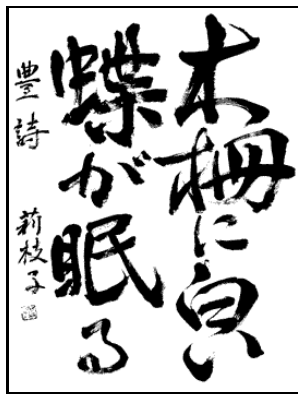 木柵に白い
蝶が眠る
豊詩 莉枝子